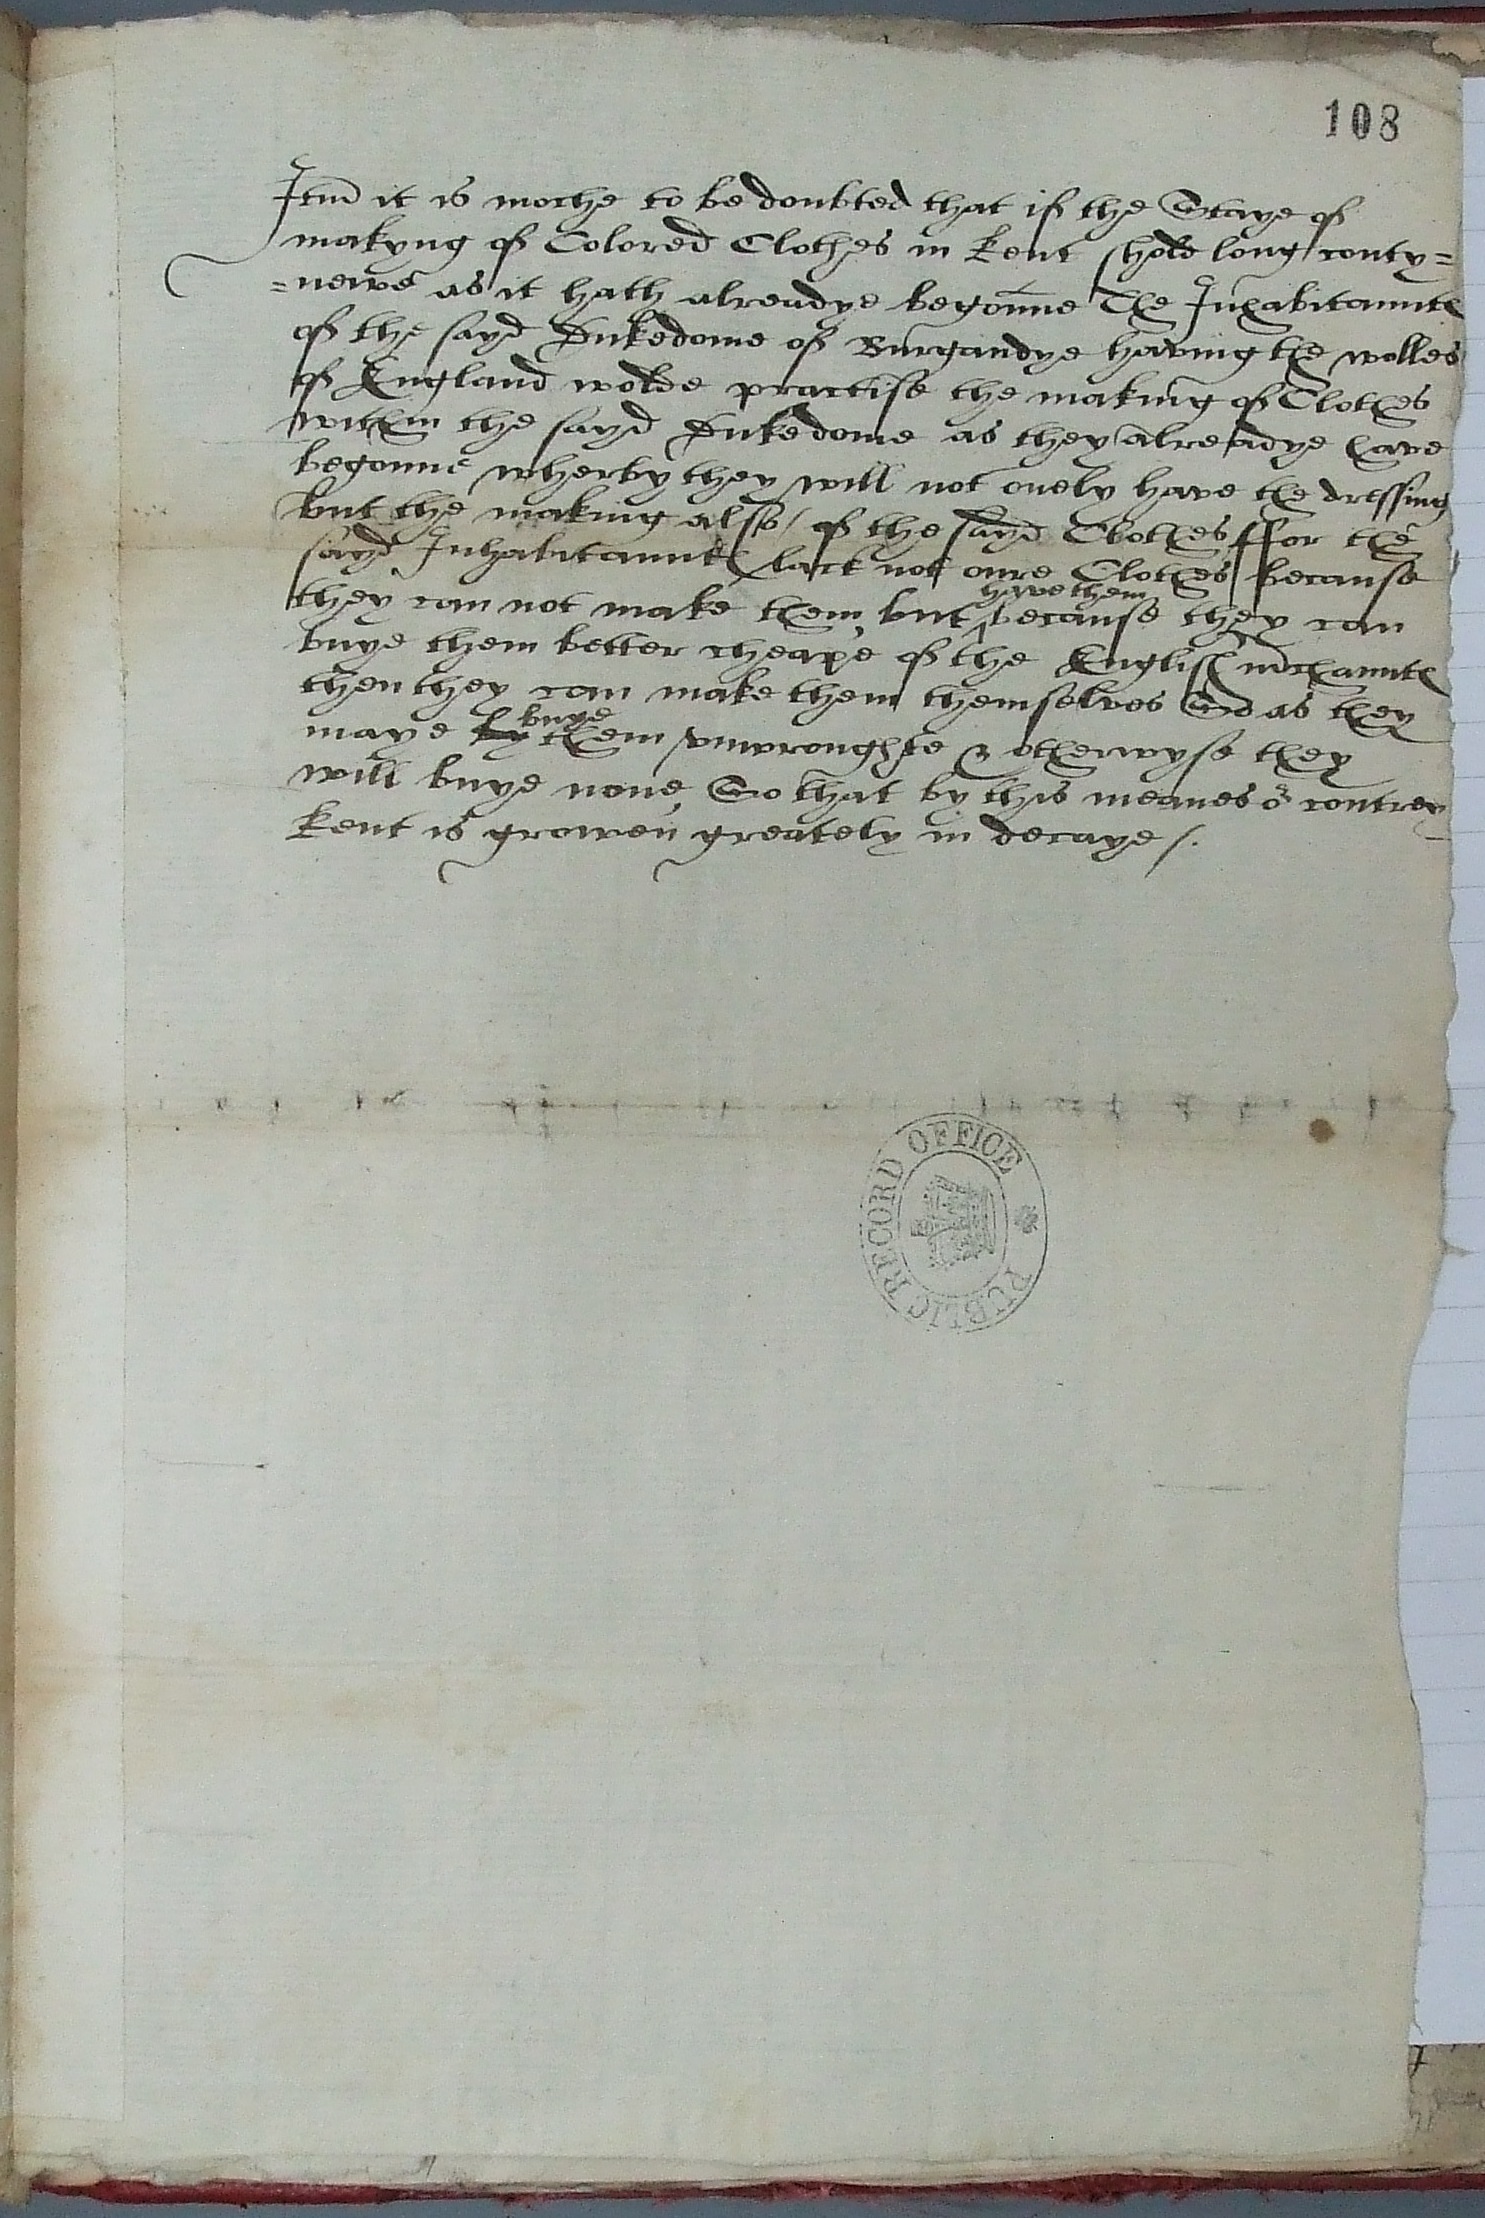 108
Itm̃ it is moche to be doubted that if the Staye of
makyng of Colored Clothes in Kent shold long conty=
=newe as it hath alreadye begonne The Inhabitauntes
of the sayd Dukedome of Burgandye having the wolles
of England wolde practise the making of Clothes
within the sayd Dukedome as they alreadye have
begonne wherby they will not onely have the dressing
but the making also / of the sayd Clothes ffor the
sayd Inhabitauntes lack not oure Clothes because
have them
they can not make them but ^ because they can
buye them better cheape of the English m̃chauntes
then they can make them themselves So as they
buye
maye by them vnwroughte & otherwyse they
will buye none So that by this meanes oʳ contrey
Kent is growen greately in decaye /.
PUBLIC RECORD OFFICE